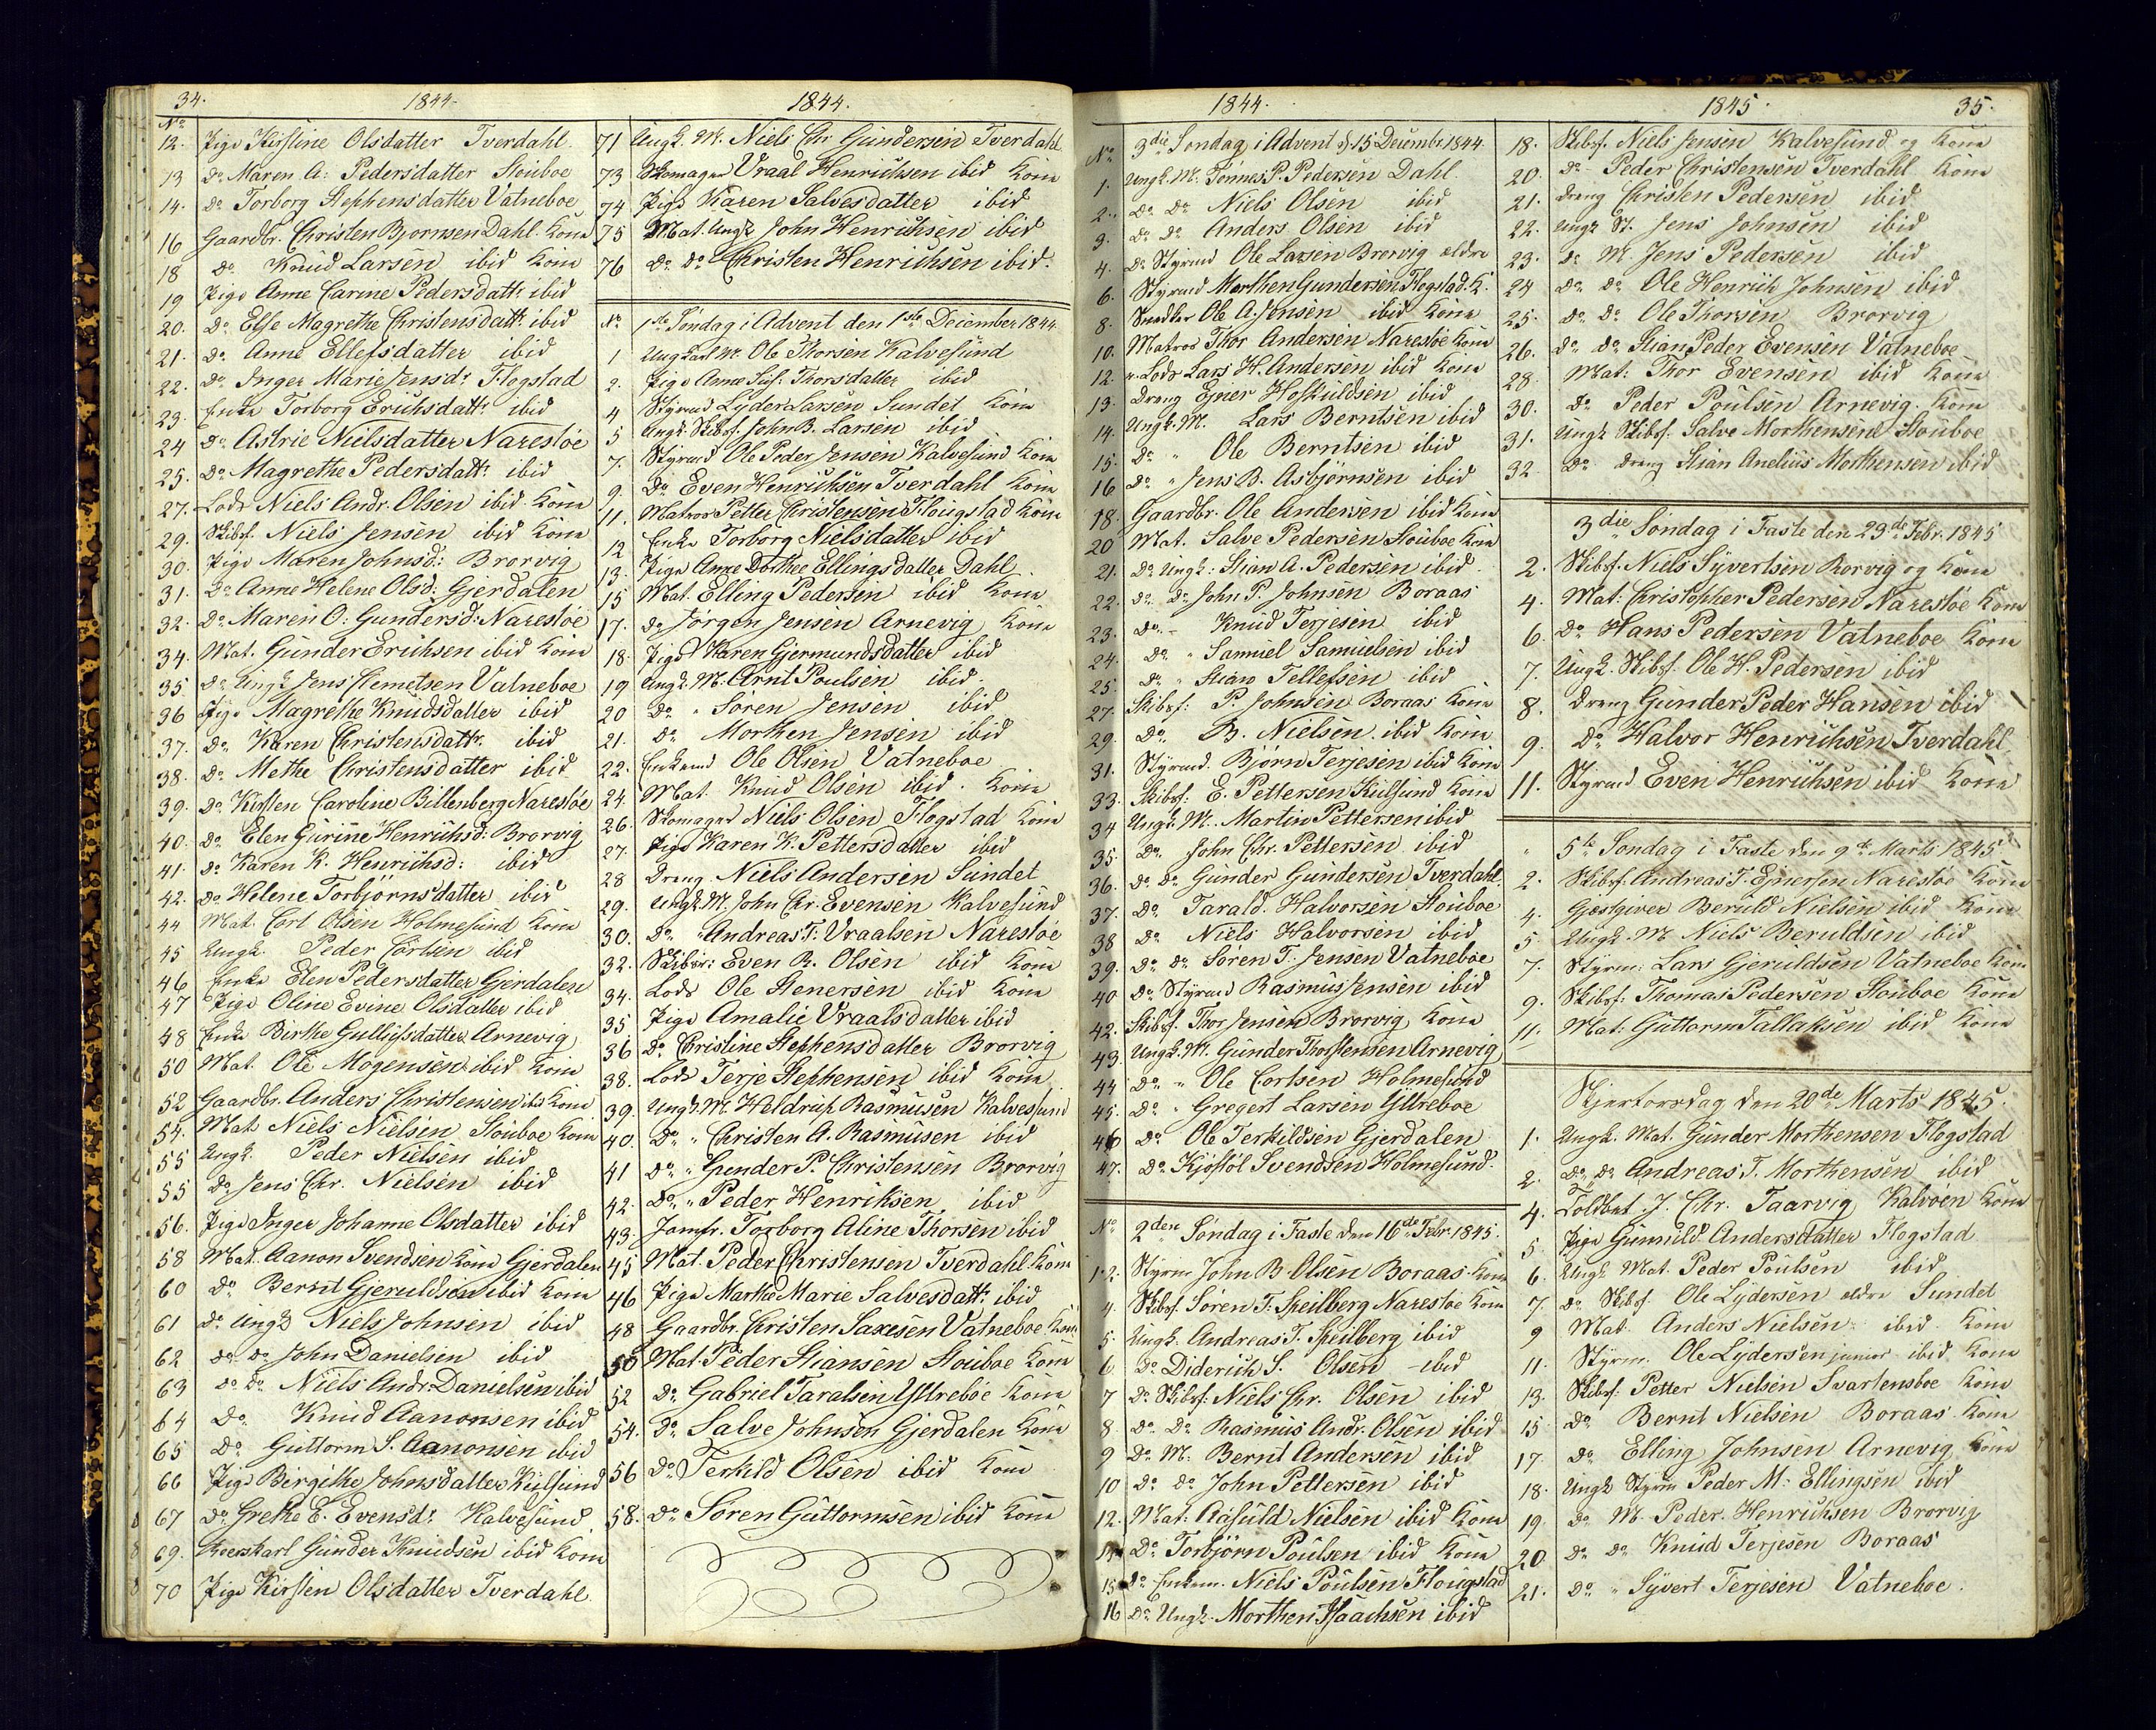 34.
1844.
No
12. Pige Kirstine Olsdatter Tverdahl
13 Do Maren A: Pedersdatter Stouboe
14. Do Torborg Stephensdatter Vatneboe
16 Gaardbr. Christen Bjornsen Dahl. Kone
18 Do. Knud Larsen ibid Kone
19 Pige Anne Carine Pedersdattr ibid
20. Do. Else Magrethe Christensdattr ibid
21. Do. Anne Ellefsdatter ibid
22. Do. Inger Marie Jensdr Flogstad
23. Enke Torborg Erichsdattr ibid
24 Do Astrie Nielsdatter Narestøe
25. Do Magrethe Pedersdattr ibid
27. Lods Niels Andr. Olsen ibid Kone
29. Skibsf. Niels Jensen ibid Kone
30. Pige Maren Johnsd: Brorvig
31. Do Anne Helene Olsd: Gjerdalen
32. Do Maren O: Gundersd: Narestøe
34. Mat. Gunder Erichsen ibid Kone
35. Do Ungk Jens Clemetsen Vatneboe
36 Pige Magrethe Knudsdatter ibid
37. Do. Karen Christensdattr. ibid
38. Do. Methe Christensdatter ibid
39. Do Kirsten Caroline Biltenberg Narestøe
40. Do Elen Gurine Henrichsd: Brorvig
41. Do Karen K. Henrichsd: ibid
42. Do Helene Torbjørnsdatter ibid
44 Mat. Corl Olsen Holmesund Kone
45 Ungk. Peder Corlsen ibid
46 Enke Elen Pedersdatter Gjerdalen
47 Pige Oline Evine Olsdatter ibid
48 Enke Birthe Gulligsdatter Arnevig
50 Mat. Ole Mogensen ibid Kone
52 Gaardbr. Anders Christensen ibid Kone
54. Mat Niels Nielsen Stouboe Kone
55 Ungk. Peder Nielsen ibid
55 Do. Jens Chr. Nielsen ibid
56. Pige Inger Johanne Olsdatter ibid
58 Mat. Aanon Svendsen Kone Gjerdalen
60 Do. Bernt Gjeruldsen ibid Kone
61 Do Ungk Niels Johnsen ibid
62 Do. Do John Danielsen ibid
63 Do Do. Niels Andr. Danielsen ibid
64 Do. Knud Aanonsen ibid
65 Do. Guttorm S. Aanonsen ibid
66 Pige Birgithe Johnsdatter Kiilsund
67 Do. Grethe E. Evensdr Kalvesund
69. Gunder Knudsen ibid Kone
70 Pige Kirsten Olsdatter Tverdahl
1844.
71 Ungk. M. Niels Chr Gundersen Tverdahl
73 Skomager Vraal Henrichsen ibid Kone
74 Pige Karen Salvesdatter ibid
75 Mat. Ungk John Henrichsen ibid
76 Do. Do Christen Henrichsen ibid.
No 1ste Søndag i Advent den 1ste December 1844
1 Ungkarl M. Ole Thorsen Kalvesund
2. Pige Anne Sus: Thorsdatter ibid
4 Styrmd Lyder Larsen Sundet Kone
5 Ungk. Skibsf. John B. Larsen ibid
7. Styrmd Ole Peder Jensen Kalvesund Kone
9. Do. Even Henrichsen Tverdahl Kone
11. Matros Petter Christensen Flougstad Kone
12 Enke Torborg Nielsdatter ibid
13. Pige Anne Dorthee Ellingsdatter Dahl
15 Mat. Elling Pedersen ibid Kone
17. Do Jørgen Jensen Arnevig Kone
18. Pige Karen Gjermundsdatter ibid
19 Ungk. M: Arnt Poulsen ibid.
20 Do. " Søren Jensen ibid
21. Do. Morthen Jensen ibid
22. Enkemd Ole Olsen Vatneboe
24. Mat. Knud Olsen ibid. Kone
26. Skomager Niels Olsen Flogstad Kone
27. Pige Karen K. Pettersdatter ibid
28 Dreng Niels Andersen Sundet
29. Ungk M. John Chr. Evensen Kalvesund
30. Do. " Andreas T: Vraalsen Narestøe
32. Skibsr: Even R. Olsen ibid Kone
34. Lods Ole Stenersen ibid Kone
35 Pige Amalie Vraalsdatter ibid
36 Do Christine Stephensdatter Brorvig
38. Lods Terje Stephensen ibid Kone
39. Ungk. M. Heldrup Rasmusen Kalvesund
40. Do. " Christen A. Rasmusen ibid
41 Do. " Gunder P. Christensen Brorvig
42. Do. " Peder Henriksen ibid
43. Jomfr. Torborg Aline Thorsen ibid
45 Mat. Peder Christensen Tverdahl Kone
46 Pige Marthe Marie Salvesdattr. ibid
48 Gaardbr. Christen Saxesen Vatneboe Kone
50 Mat. Peder Stiansen Stouboe Kone
52 Do. Gabriel Taralsen Yttreboe Kone
54. Do Salve Johnsen Gjerdalen Kone
56 Do. Terkild Olsen ibid Kone
58. Do. Søren Guttormsen ibid Kone
1844.
No 3die Søndag i Advent d. 15 Decembr. 1844
1. Ungk. M. Tønnes P. Pedersen Dahl.
2. Do Do Niels Olsen ibid
3. Do Do Anders Olsen ibid
4. Do Styrmd Ole Larsen Brorvig eldre
6. Styrmd Morthen Gundersen Flogstad. K.
8. Snedker Ole A. Jensen ibid Kone
10. Matros Thor Andersen Narestøe Kone
12. Lods Lars H. Andersen ibid Kone
13. Dreng Ejner Hofkuldsen ibid
14. Ungk. M. Lars Berntsen ibid
15. Do. " Ole Berntsen ibid
16 Do. " Jens B. Asbjørnsen ibid
18. Gaardbr. Ole Andersen ibid Kone
20 Mat. Salve Pedersen Stouboe Kone
21. Do Ungk: Stian A. Pedersen ibid
22. Do. Do. John P. Johnsen Boraas
23. Do. - Knud Terjesen ibid
24. Do. " Samuel Samuelsen ibid
25 Do. " Stian Tellefsen ibid
27. Skibsf: P. Johnsen Boraas Kone
29. Do. B. Nielsen ibid Kone
31. Styrmd. Bjørn Terjesen ibid Kone
33. Skibsf: E. Pettersen Kiilsund Kone
34 Ungk. M. Martin Pettersen ibid
35. Do. John Chr. Pettersen ibid
36. Do Do Gunder Gundersen Tverdahl
37. Do. Tarald. Halvorsen Stouboe
38 Do. Niels Halvorsen ibid
39. Do Do Søren T. Jensen Vatneboe
40 Do. Styrmd Rasmus Jensen ibid
42. Skibsf. Thor Jensen Brorvig Kone
43. Ungk. M. Gunder Thorstensen Arnevig
44 Do. " Ole Corlsen Holmesund
45. Do. " Gregert Larsen Yttreboe
46 Do. Ole Terkildsen Gjerdalen
47. Do. Kjøstøl Svendsen Holmesund.
No 2den Søndag i Faste den 16de Febr. 1845.
1.2. Styrm John B. Olsen Boraas Kone
4. Skibsf. Søren T: Speilberg Narestøe Kone
5. Ungk. Andreas T. Speilberg ibid
6. Do Diderich S. Olsen ibid
7 Do. Skibsf. Niels Chr. Olsen ibid
8. Do. Do. Rasmus Andr. Olsen ibid
9 Do. M. Bernt Andersen ibid
10 Do Do. John Pettersen ibid
12. Mat. Røsuld Nielsen ibid Kone
14 Do. Torbjørn Poulsen ibid Kone
15 Do Enkem. Niels Poulsen Flougstad
16 Do Ungk. Morthen Isaachsen ibid
1845.
35.
18. Skibsf. Niels Jensen Kalvesund og Kone
20. Do - Peder Christensen Tverdahl Kone
21. Dreng Christen Pedersen ibid
22. Ungk St. Jens Johnsen ibid
23. Do M. Jens Pedersen ibid
24 Do. Do. Ole Henrich Johnsen ibid
25. Do. Do. Ole Thorsen Brorvig
26. Do. Do. Stian Peder Evensen Vatneboe
28. Mat: Thor Evensen ibid Kone
30. Do. Peder Poulsen Arnevig. Kone
31. Ungk Skibsf. Salve Morthensen Stouboe
32. Do. Dreng Stian Anelius Morthensen ibid
3die Søndag i Faste den 23de Febr. 1845
2. Skibsf. Niels Syvertsen Rorvig og Kone
4. Mat: Christopher Pedersen Narestøe Kone
6. Do Hans Pedersen Vatneboe Kone
7. Ungk. Skibsf. Ole H. Pedersen ibid
8. Dreng Gunder Peder Hansen ibid
9. Do Halvor Henrichsen Tverdahl
11. Styrmd Even Henrichsen ibid Kone
5te Søndag i Faste den 9de Marts 1845
2. Skibsf. Andreas T. Enersen Narestøe Kone
4. Gjæstgiver Beruld Nielsen ibid Kone
5. Ungk. M. Niels Beruldsen ibid
7. Styrm: Lars Gjeruldsen Vatneboe Kone
9. Skibsf: Thomas Pedersen Stouboe Kone
11. Mat: Guttorm Tallaksen ibid Kone
Skjertorsdag den 20de Marts 1845.
1. Ungk. Mat. Gunder Morthensen Flogstad
2. Do. Do Andreas T. Morthensen ibid
4. Toldbet. J. Chr. Taarvig Kalvøen Kone
5. Pige Gunnild Andersdatter Flogstad
6. Ungk Mat. Peder Poulsen ibid
7. Do. Skibsf. Ole Lydersen eldre Sundet
9 Mat. Anders Nielsen ibid. Kone
11. Styrm. Ole Lydersen junior ibid Kone
13. Skibsf: Petter Nielsen Svartensboe Kone
15 Do. Bernt Nielsen Boraas Kone
17. Do. Elling Johnsen Arnevig Kone
18. Ungk Styrm Peder M. Ellingsen ibid
19. Do. M. Peder Henrichsen Brorvig
20. Do Do. Knud Terjesen Boraas
21. Do. " Syvert Terjesen Vatneboe.